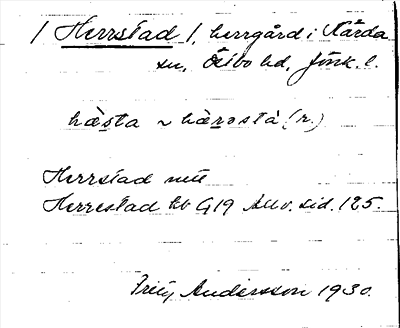 / Herrstad /, herrgård i Kärda
sn, Östbo hd, Jönk. l.
hæsta ~ hærosta (r.)
Herrstad
Herrestad kb G19 Allv. sid. 125.
Andersson 1930.